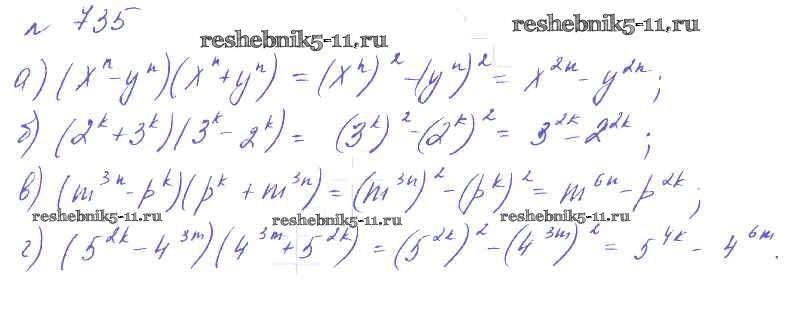 № 735
reshebnik5-11.ru
reshebnik5-11.ru
а) (xⁿ - yⁿ)(xⁿ + yⁿ) = (xⁿ)² - (yⁿ)² = x²ⁿ - y²ⁿ;
б) (2ᵏ + 3ᵏ)(3ᵏ - 2ᵏ) = (3ᵏ)² - (2ᵏ)² = 3²ᵏ - 2²ᵏ;
в) (m³ⁿ - pᵏ)(pᵏ + m³ⁿ) = (m³ⁿ)² - (pᵏ)² = m⁶ⁿ - p²ᵏ;
reshebnik5-11.ru
reshebnik5-11.ru
reshebnik5-11.ru
г) (5²ᵏ - 4³ᵐ)(4³ᵐ + 5²ᵏ) = (5²ᵏ)² - (4³ᵐ)² = 5⁴ᵏ - 4⁶ᵐ.